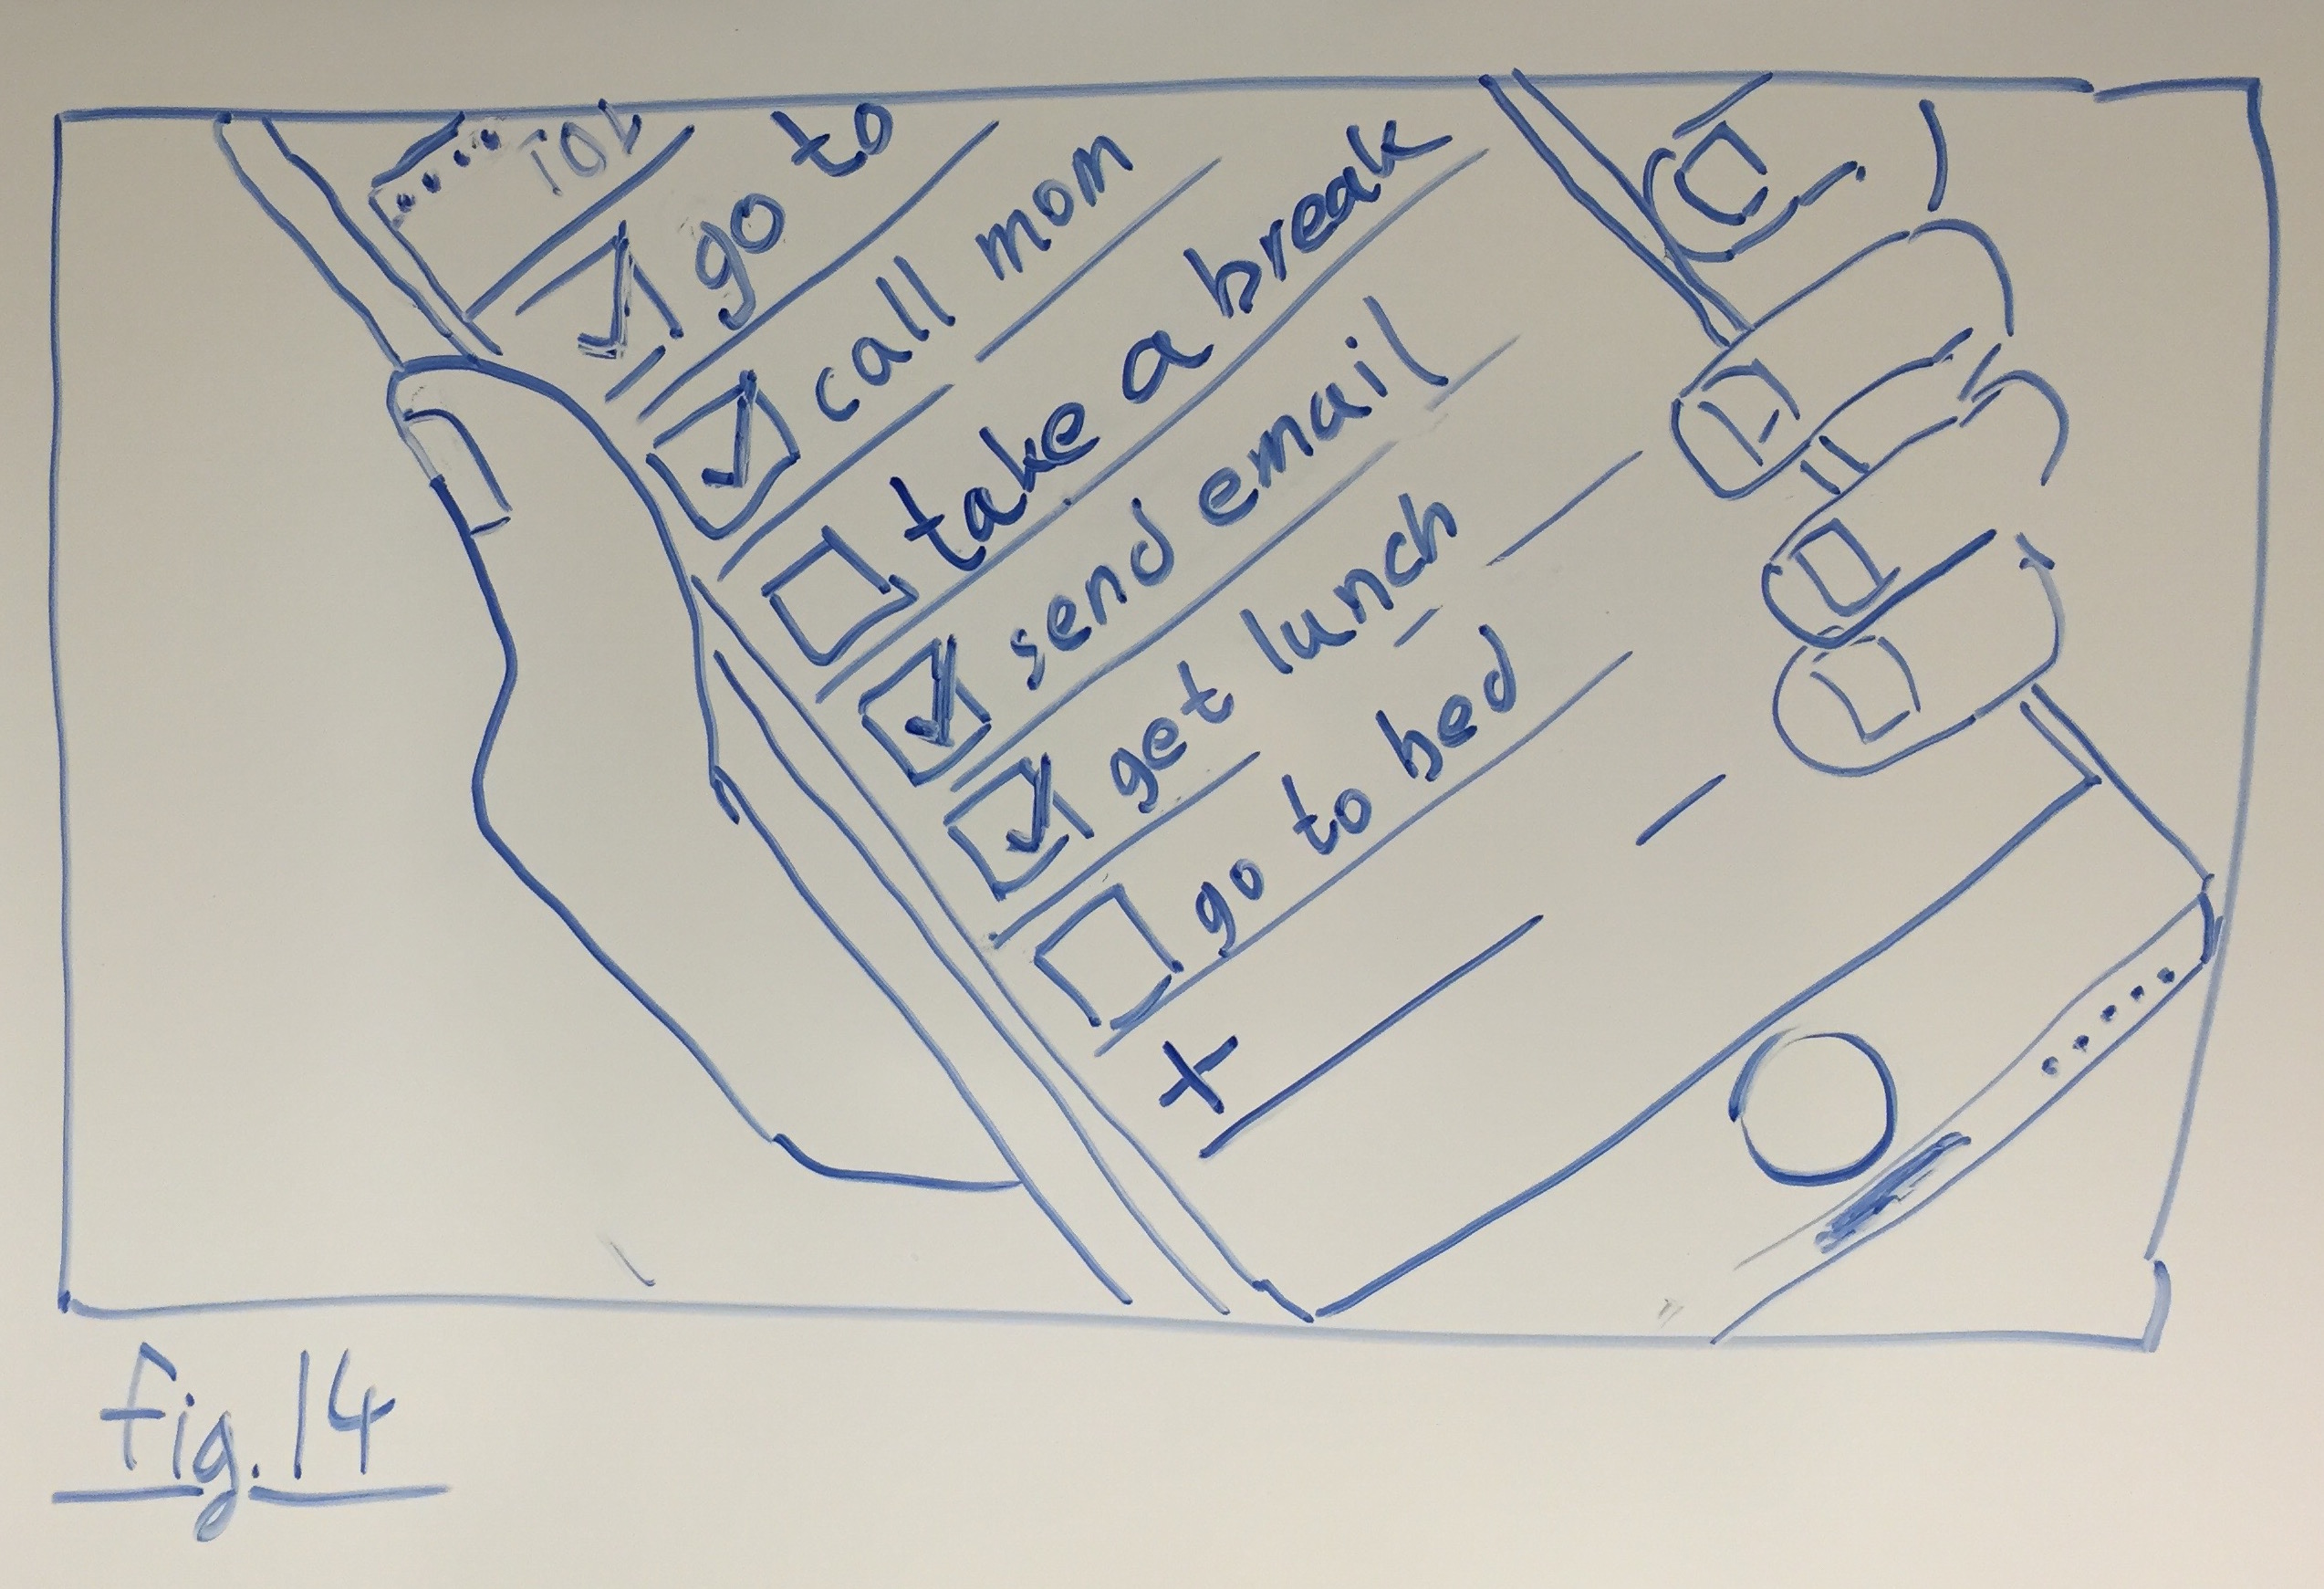 go to
call mom
take a break
send email
get lunch
go to bed
+
fig. 14